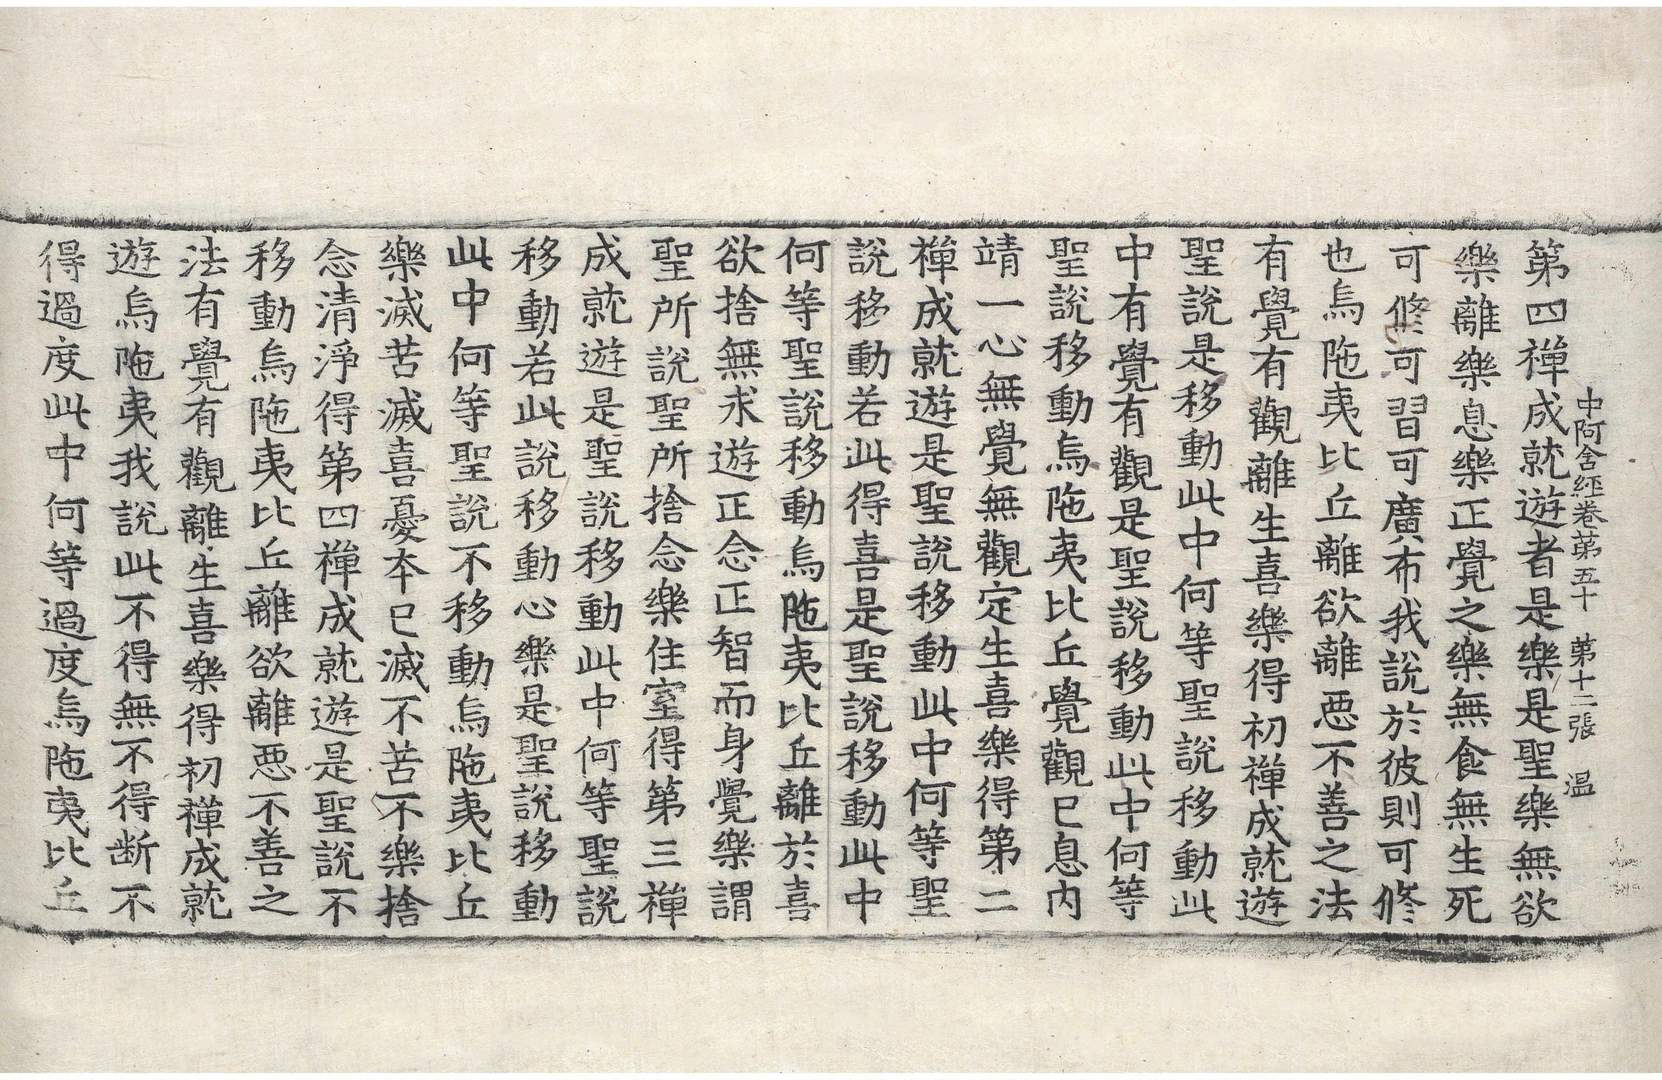 中阿含經卷第五十　第十二張　溫
第四禪成就遊者是樂是聖樂無欲
樂離樂息樂正覺之樂無食無生死
可修可習可廣布我說於彼則可修
也烏陁夷比丘離欲離惡不善之法
有覺有觀離生喜樂得初禪成就遊
聖說是移動此中何等聖說移動此
中有覺有觀是聖說移動此中何等
聖說移動烏陁夷比丘覺觀已息內
靖一心無覺無觀定生喜樂得第二
禪成就遊是聖說移動此中何等聖
說移動若此得喜是聖說移動此中
何等聖說移動烏陁夷比丘離於喜
欲捨無求遊正念正智而身覺樂謂
聖所說聖所捨念樂住室得第三禪
成就遊是聖說移動此中何等聖說
移動若此說移動心樂是聖說移動
此中何等聖說不移動烏陁夷比丘
樂滅苦滅喜憂本已滅不苦不樂捨
念清淨得第四禪成就遊是聖說不
移動烏陁夷比丘離欲離惡不善之
法有覺有觀離生喜樂得初禪成就
遊烏陁夷我說此不得無不得斷不
得過度此中何等過度烏陁夷比丘